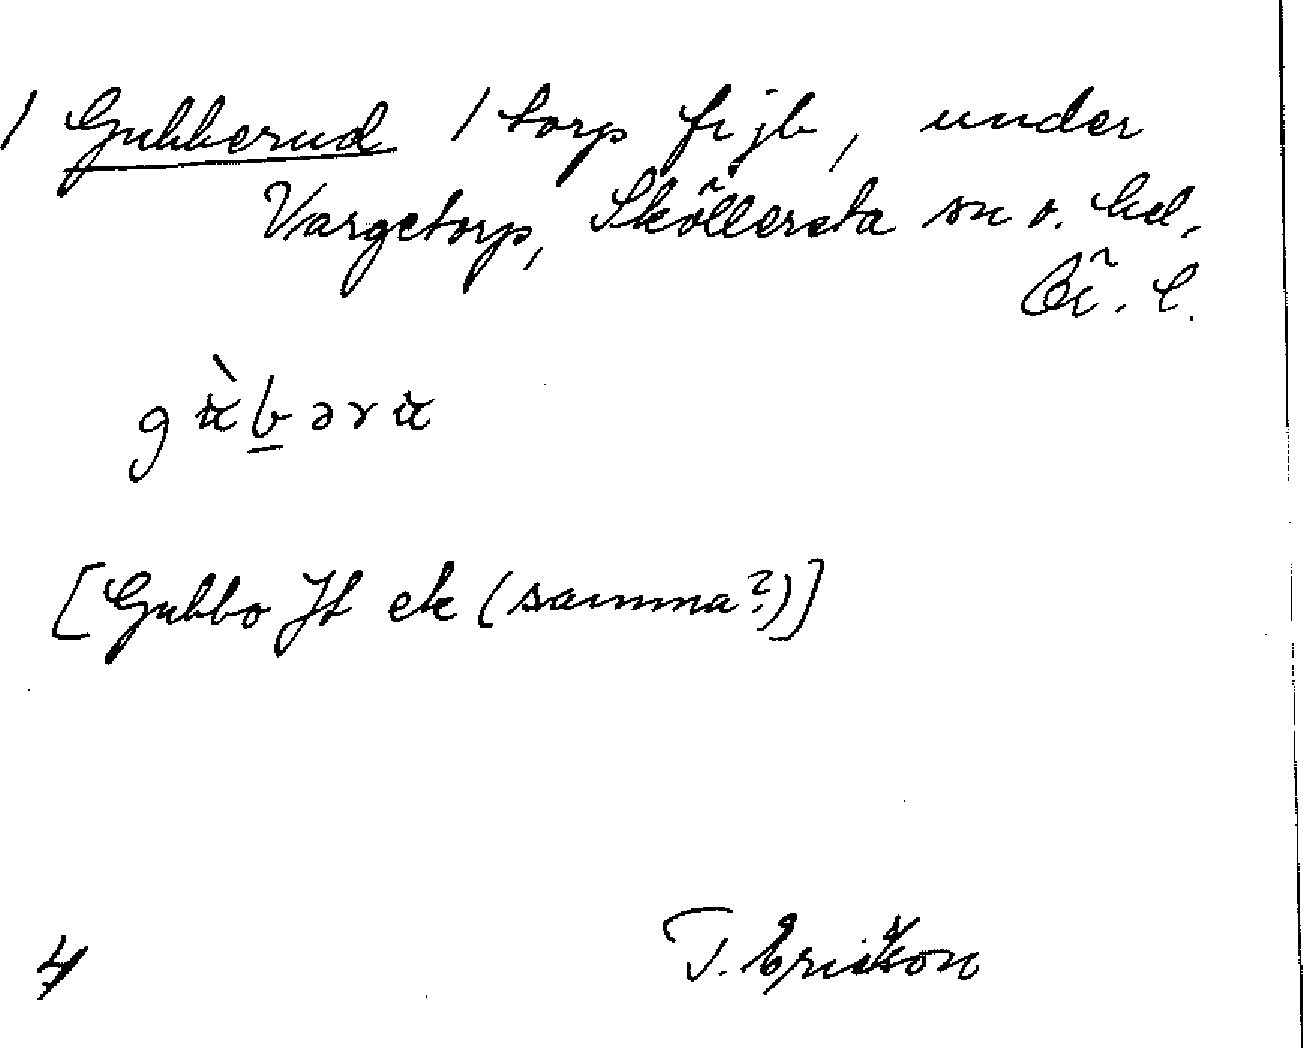 / Gubberud / torp fr jb, under
Vargetorp, Sköllersta sn o. hd,
Ör. l.
gù̵bəru̵
[Gubbo Jb ek (samma?)]
4 T. Ericson